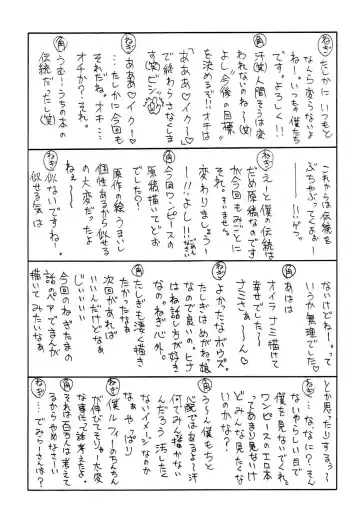 ねぎ
たしかに いつもと
なんら変らないよ
ねー。いつもの僕たち
です。よろしく!!
角
汗(笑) 人間そうは変
われないのね〜(笑)
よし 今後の目標
を決めるで!! オチは
「あああ♡イクー」
で終わらさなくしま
す(笑) ビシ
ねぎ
あああ♡イクー!
…たしかに今回も
それだね。オチ…
オチか??それ。
角
うむ!うちの本の
伝統だったし(笑)
これからは伝統を
ぶちやぶってくよぉー
!!ゲフ
ねぎ
えーと僕の伝統は
だめ原稿なのです
が今回もみごとに
それ。すいません。
変わりましょうー
ー!!よし!!
角
今回ワンピースの
原稿描いてどお
でした?
ねぎ
原作の絵うまい
の大変だったよ
個性あるから似せる
ねぇ〜
角
似ないですね。
似せる気は
ないけどねー。って
いうか無理でした♡
角
あはは
オイラ ナミ描けて
幸せでした〜
ナミさぁ〜ん♡
ねぎ
よかったなボウズ。
たしぎはめがね娘
なので良いの。ヒナ
はね話し方が好き
なの。ねぎ心外。
角
たしぎも凄く描き
たかったなぁ
次回があれば
いいんだけどなぁ
じぃいいい
ねぎ
今回のねぎたまの
話のペアでまんが
描いてみたいなぁ。
とか思ったりするっ〜
ねぎ
な、なに?そん
ないやらしい目で
僕を見ないでくれ。
ワンピースのエロ本
ってあまり見ないけ
どみんな見たくな
いのかな?
角
う〜ん僕もちと
心配ではあるよ〜汗
何でみんな描かない
んだろう 汚したく
ないイメージなのか
なぁ やっぱり
ねぎ
僕 ルフィーのちんちん
が伸びてそりゃー大変
な事件って話考えたよ
角
それは百万人は考えて
るからやめなさいー
ねぎ
…でみらーさんは?